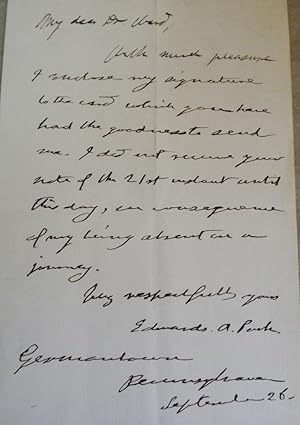 My dear Dr Ward,
With much pleasure
I enclose my signature
to the card which you have
had the goodness to send
me. I did not receive your
note of the 21st instant until
this day, in consequence
of my being absent on a
journey.
Very respectfully yours
Edwards. A. Park
Germantown
Pennsylvania
September 26.